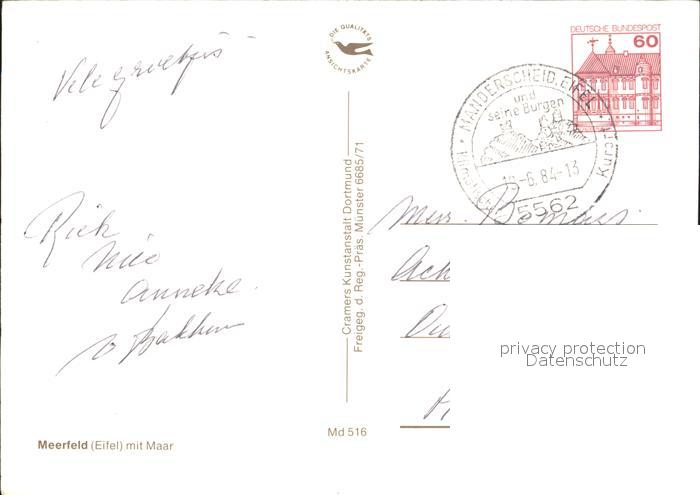 Vele groetjes
Rick
Nico
Anneke.
Meerfeld (Eifel) mit Maar
DIE QUALITÄTS
ANSICHTSKARTE
Cramers Kunstanstalt Dortmund
Freigeg. d. Reg.-Präs. Münster 6685/71
Md 516
DEUTSCHE BUNDESPOST
60
MANDERSCHEID, EIFEL
und
seine Burgen
Kurort
-6.84-13
5562
privacy protection
Datenschutz